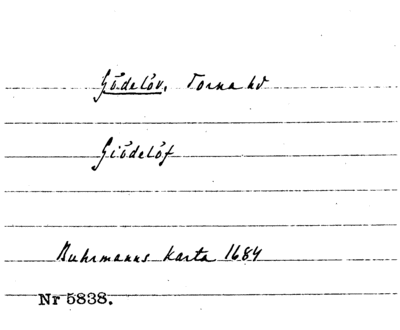 Gödelöv, Torna hd
Giödelöf
Buhrmanns karta 1684
Nr 5838.